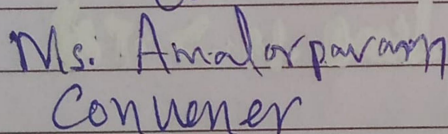 Ms. Amalorpavam
Convener